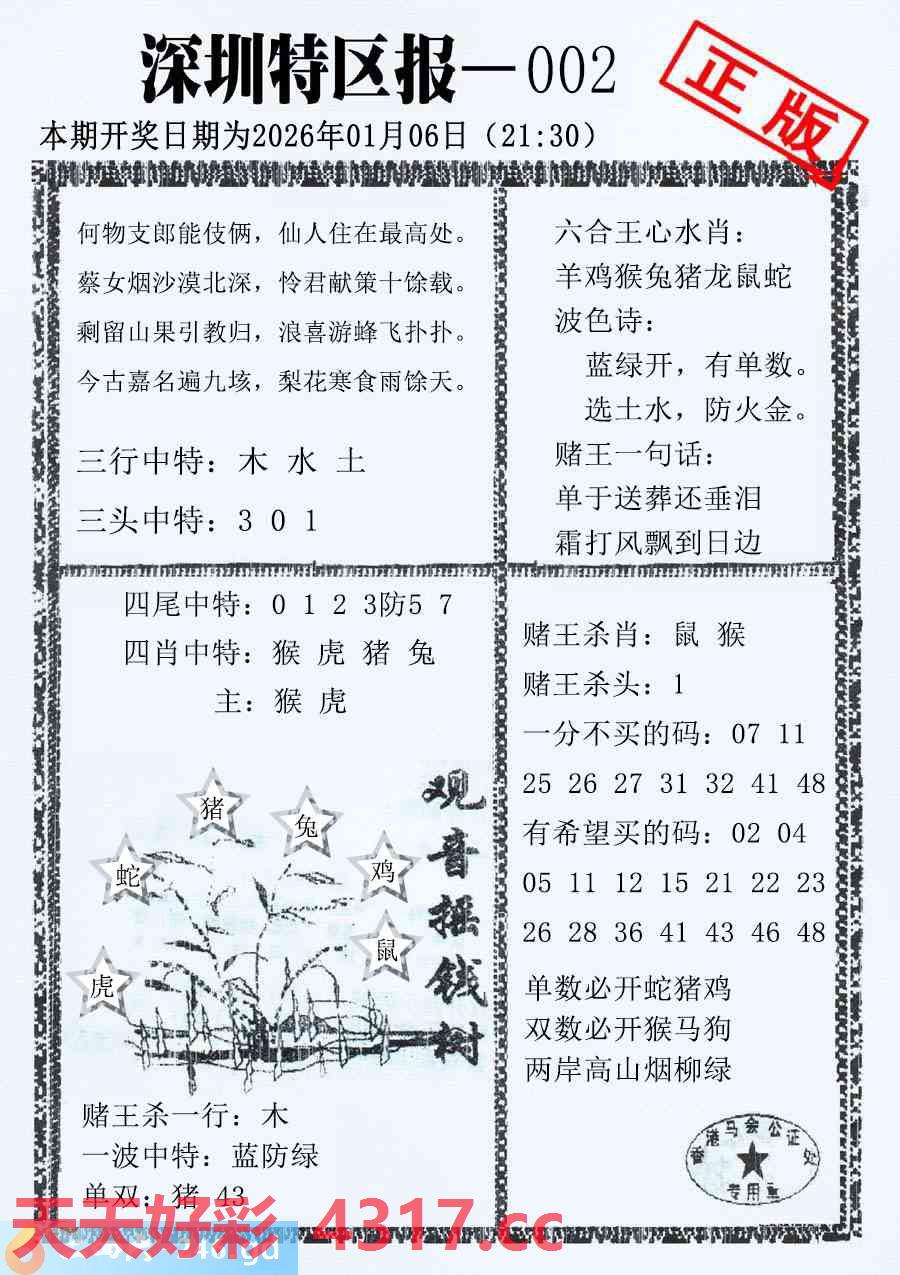 深圳特区报—002
正版
本期开奖日期为2026年01月06日（21:30）
何物支郎能伎俩，仙人住在最高处。
蔡女烟沙漠北深，怜君献策十馀载。
剩留山果引教归，浪喜游蜂飞扑扑。
今古嘉名遍九垓，梨花寒食雨馀天。
三行中特：木 水 土
三头中特：3 0 1
六合王心水肖：
羊鸡猴兔猪龙鼠蛇
波色诗：
蓝绿开，有单数。
选土水，防火金。
赌王一句话：
单于送葬还垂泪
霜打风飘到日边
四尾中特：0 1 2 3防5 7
四肖中特：猴 虎 猪 兔
主：猴 虎
观音摇钱树
猪
兔
蛇
鸡
鼠
虎
赌王杀一行：木
一波中特：蓝防绿
单双：猪 43
赌王杀肖：鼠 猴
赌王杀头：1
一分不买的码：07 11
25 26 27 31 32 41 48
有希望买的码：02 04
05 11 12 15 21 22 23
26 28 36 41 43 46 48
单数必开蛇猪鸡
双数必开猴马狗
两岸高山烟柳绿
香港马会公证处
专用章
天天好彩 4317.cc